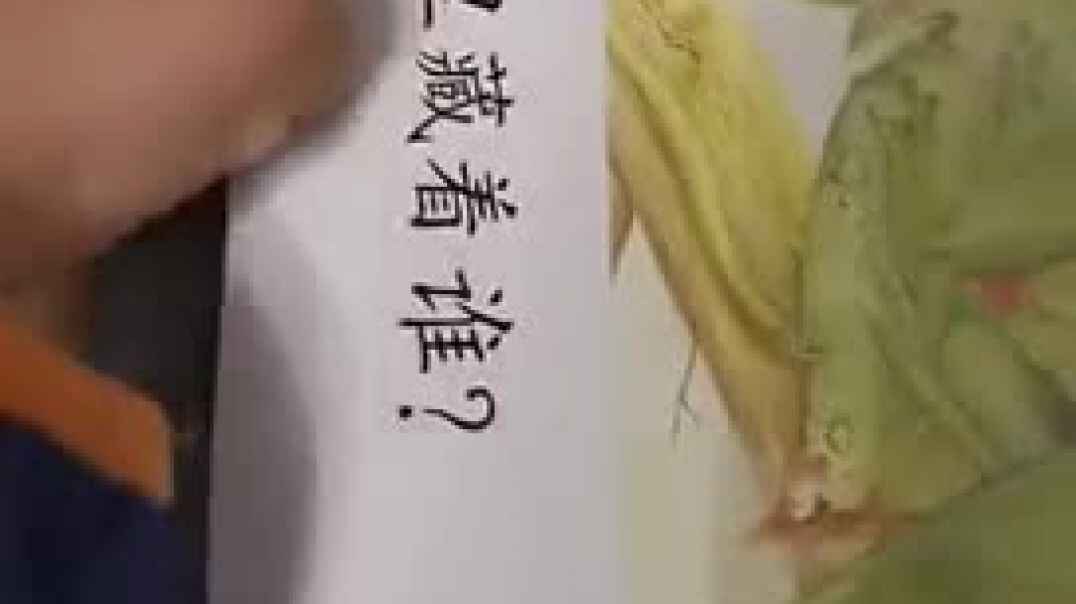 藏着谁?